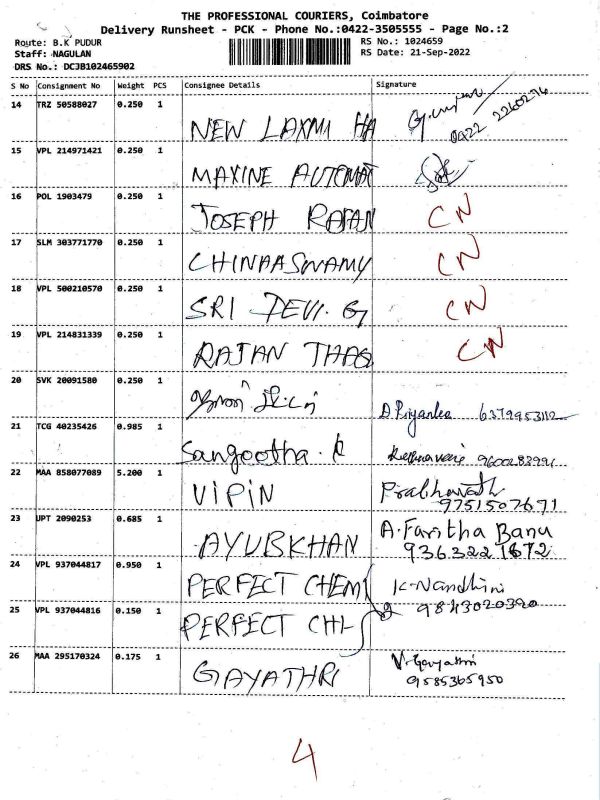 THE PROFESSIONAL COURIERS, Coimbatore
Delivery Runsheet - PCK - Phone No.:0422-3505555 - Page No.:2
Route: B.K PUDUR RS No.: 1024659
Staff: NAGULAN RS Date: 21-Sep-2022
DRS No.: DCJB102465902
S No Consignment No Weight PCS Consignee Details Signature
14 TRZ 50588027 0.250 1 NEW LAXMI HA 0422 2260276
15 VPL 214971421 0.250 1 MAXINE AUTOMAT
16 POL 1903479 0.250 1 JOSEPH RAJAN CN
17 SLM 303771770 0.250 1 CHINAASWAMY CN
18 VPL 500210570 0.250 1 SRI DEVI. G CN
19 VPL 214831339 0.250 1 RAJAN THAS CN
20 SVK 20091580 0.250 1 D.Priyanka 6379953112
21 TCG 40235426 0.985 1 Sangeetha. K 9600283991
22 MAA 858077089 5.200 1 VIPIN Prabhavath
9751507671
23 UPT 2090253 0.685 1 AYUBKHAN A.Faritha Banu
9363221672
24 VPL 937044817 0.950 1 PERFECT CHEMI K-Nandhini
9843020320
25 VPL 937044816 0.150 1 PERFECT CHE
26 MAA 295170324 0.175 1 GAYATHRI V.Gayathri
9585365950
4